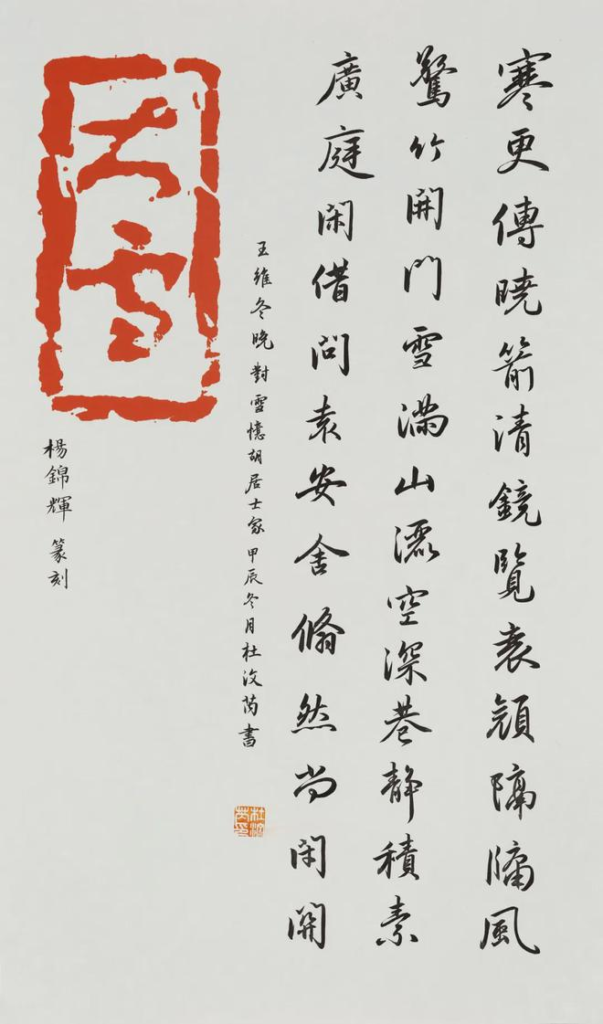 寒更傳曉箭清鏡覽衰顏隔牖風
驚竹開門雪滿山灑空深巷靜積素
廣庭閑借問袁安舍翛然尚閉關
王維冬晚對雪憶胡居士家甲辰冬月杜汶芮書
大雪
楊錦輝 篆刻